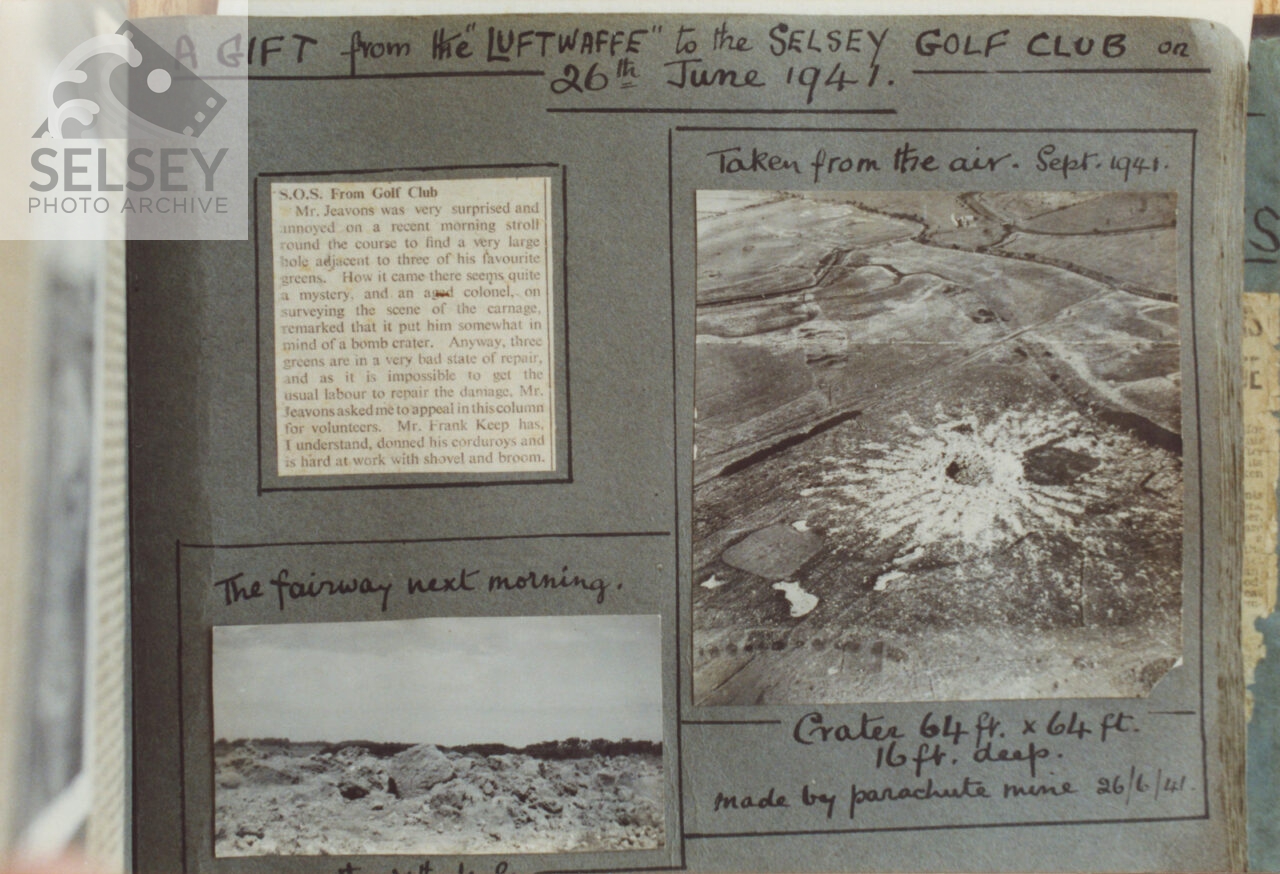 A GIFT from the "LUFTWAFFE" to the SELSEY GOLF CLUB on
26th June 1941.
SELSEY
PHOTO ARCHIVE
S.O.S. From Golf Club
Mr. Jeavons was very surprised and
annoyed on a recent morning stroll
round the course to find a very large
hole adjacent to three of his favourite
greens. How it came there seems quite
a mystery, and an aged colonel, on
surveying the scene of the carnage,
remarked that it put him somewhat in
mind of a bomb crater. Anyway, three
greens are in a very bad state of repair,
and as it is impossible to get the
usual labour to repair the damage, Mr.
Jeavons asked me to appeal in this column
for volunteers. Mr. Frank Keep has,
I understand, donned his corduroys and
is hard at work with shovel and broom.
Taken from the air. Sept. 1941.
Crater 64 ft. x 64 ft.
16 ft. deep.
made by parachute mine 26/6/41.
The fairway next morning.